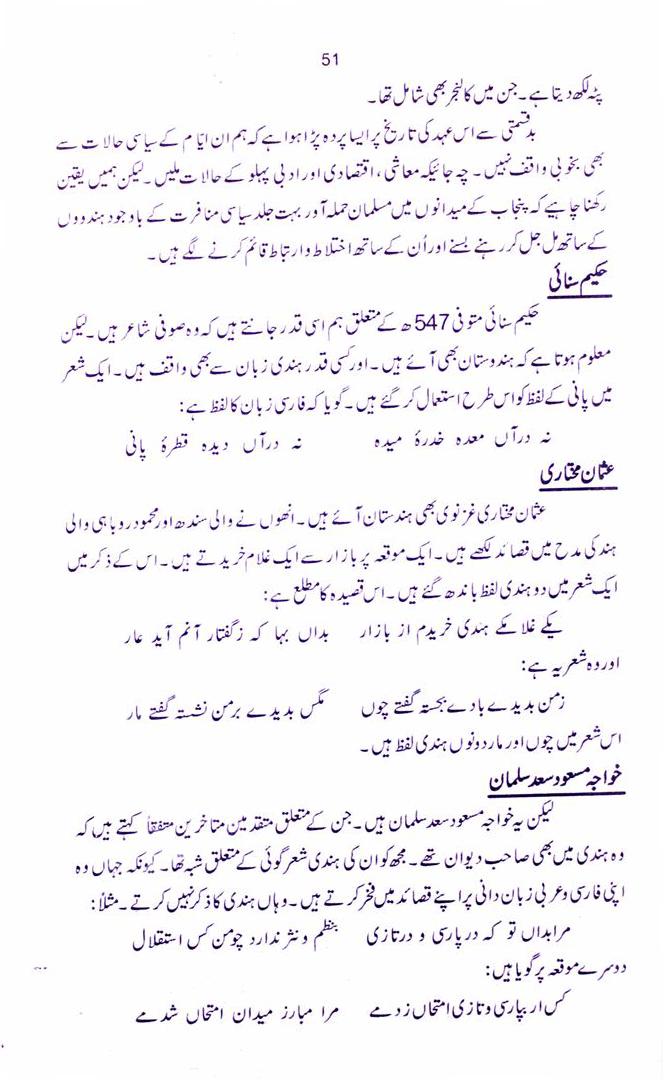 51
پٹہ لکھ دیتا ہے۔ جن میں کالنجر بھی شامل تھا۔
بدقسمتی سے اس عہد کی تاریخ پر ایسا پردہ پڑا ہوا ہے کہ ہم ان ایّام کے سیاسی حالات سے
بھی بخوبی واقف نہیں۔ چہ جائیکہ معاشی، اقتصادی اور ادبی پہلو کے حالات ملیں۔ لیکن ہمیں یقین
رکھنا چاہیے کہ پنجاب کے میدانوں میں مسلمان حملہ آور بہت جلد سیاسی منافرت کے باوجود ہندووں
کے ساتھ مل جل کر رہنے بسنے اور اُن کے ساتھ اختلاط و ارتباط قائم کرنے لگے ہیں۔
حکیم سنائی
حکیم سنائی متوفی 547ھ کے متعلق ہم اسی قدر جانتے ہیں کہ وہ صوفی شاعر ہیں۔ لیکن
معلوم ہوتا ہے کہ ہندوستان بھی آئے ہیں۔ اور کسی قدر ہندی زبان سے بھی واقف ہیں۔ ایک شعر
میں پانی کے لفظ کو اس طرح استعمال کر گئے ہیں۔ گویا کہ فارسی زبان کا لفظ ہے:
نہ درآں معدہ خدرۂ میدہ نہ درآں دیدہ قطرۂ پانی
عثمان مختاری
عثمان مختاری غزنوی بھی ہندستان آئے ہیں۔ انھوں نے والی سندھ اور محمود روباہی والی
ہند کی مدح میں قصائد لکھے ہیں۔ ایک موقعہ پر بازار سے ایک غلام خریدتے ہیں۔ اس کے ذکر میں
ایک شعر میں دو ہندی لفظ باندھ گئے ہیں۔ اس قصیدہ کا مطلع ہے:
یکے غلامکے ہندی خریدم از بازار بداں بہا کہ ز گفتار آنم آید عار
اور وہ شعر یہ ہے:
زمن بدیدے بادے بجستہ گفتے چوں مگس بدیدے بر من نشستہ گفتے مار
اس شعر میں چوں اور مار دونوں ہندی لفظ ہیں۔
خواجہ مسعود سعد سلمان
لیکن یہ خواجہ مسعود سعد سلمان ہیں۔ جن کے متعلق متقدمین متاخرین متفقاً کہتے ہیں کہ
وہ ہندی میں بھی صاحب دیوان تھے۔ مجھ کو ان کی ہندی شعر گوئی کے متعلق شبہ تھا۔ کیونکہ جہاں وہ
اپنی فارسی و عربی زبان دانی پر اپنے قصائد میں فخر کرتے ہیں۔ وہاں ہندی کا ذکر نہیں کرتے۔ مثلاً:
مرا بداں تو کہ در پارسی و در تازی بنظم و نثر ندارد چومن کس استقلال
دوسرے موقعہ پر گویا ہیں:
کس ار بپارسی و تازی امتحاں زدمے مرا مبارز میدان امتحاں شدمے